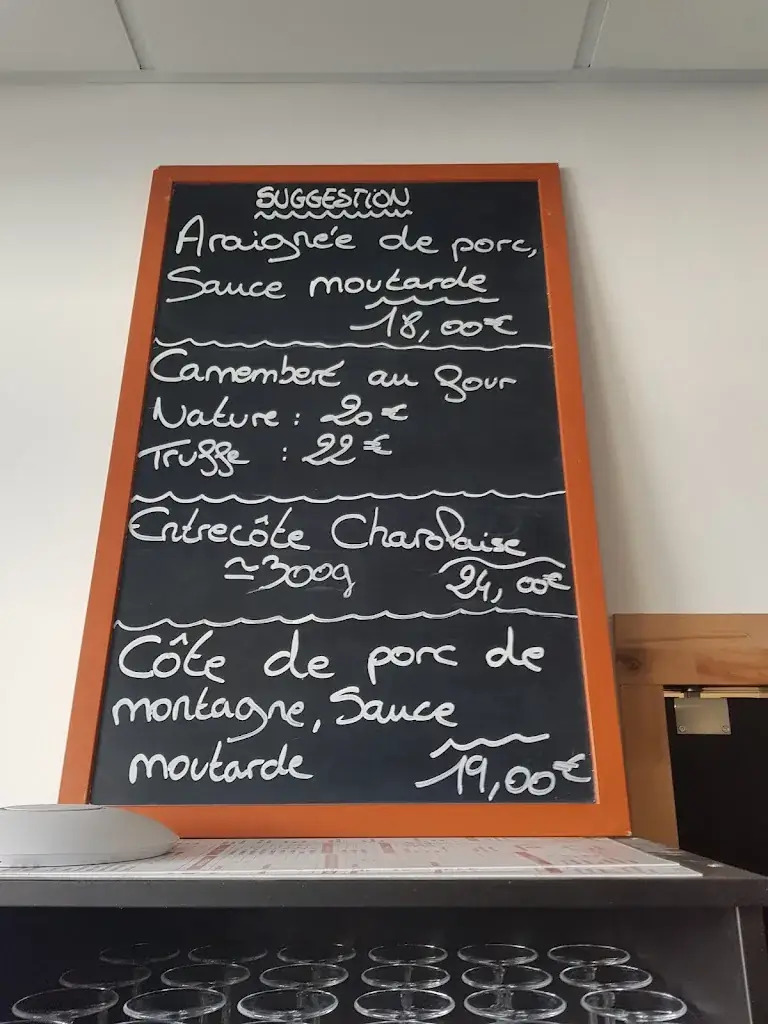 SUGGESTION
Araignée de porc,
Sauce moutarde
18,00€
Camembert au four
Nature : 20€
Truffe : 22€
Entrecôte Charolaise
≃300g 24,00€
Côte de porc de
montagne, Sauce
moutarde 19,00€